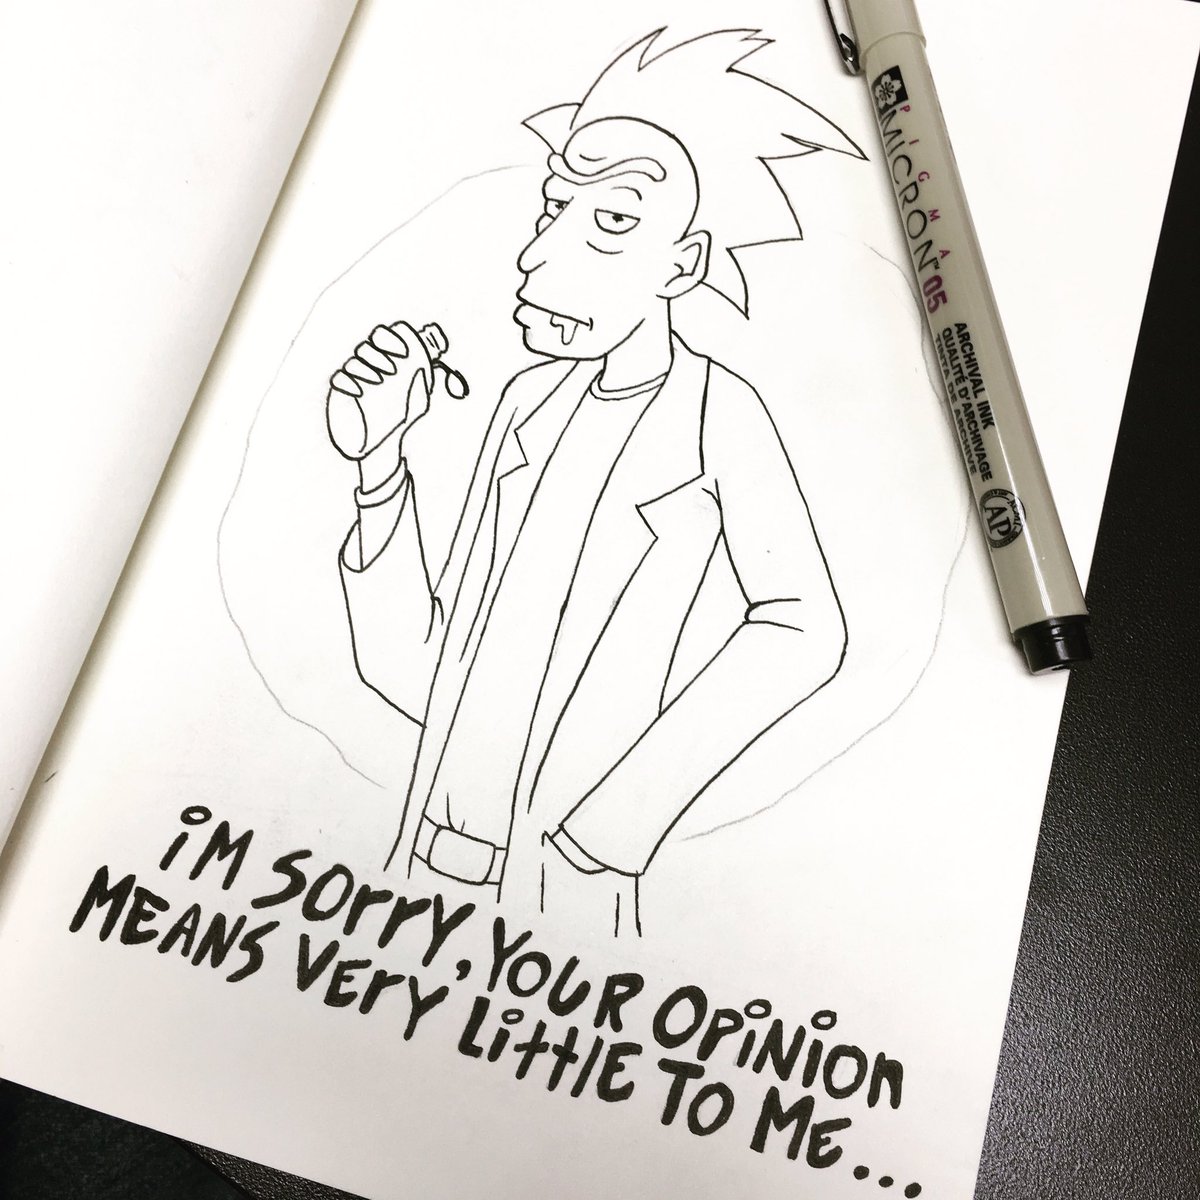 PIGMA
MICRON™ 05
ARCHIVAL INK
QUALITÉ D'ARCHIVAGE
TINTA DE ARCHIVE
AP
iM SOrrY, YOUR OPiNiOn
MEANS VErY LittlE TO ME...